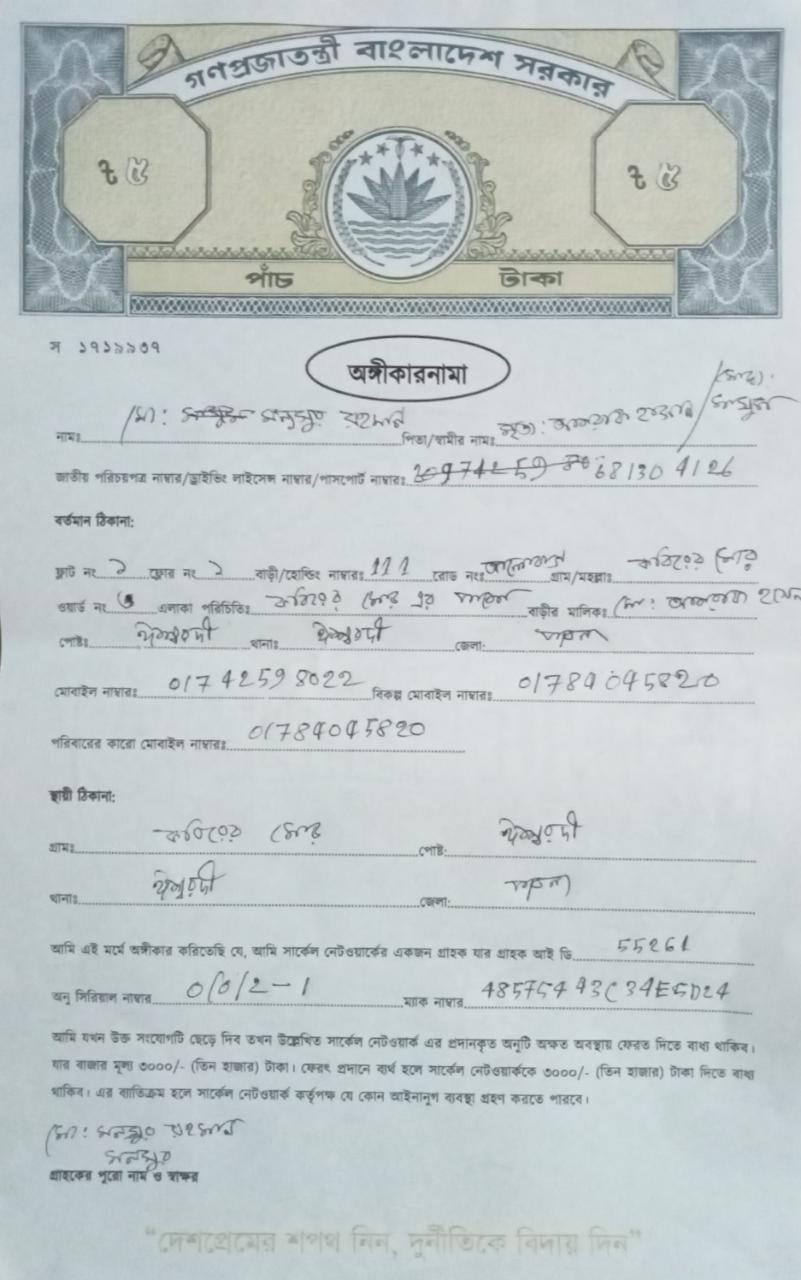 গণপ্রজাতন্ত্রী বাংলাদেশ সরকার
৳ ৫ ৳ ৫
পাঁচ টাকা
স ১৭১৯৯৩৭
অঙ্গীকারনামা
নামঃ মো: মনসুর রহমান পিতা/স্বামীর নামঃ মৃত:
জাতীয় পরিচয়পত্র নাম্বার/ড্রাইভিং লাইসেন্স নাম্বার/পাসপোর্ট নাম্বারঃ 681304126
বর্তমান ঠিকানা:
ফ্লাট নং ১ ফ্লোর নং ১ বাড়ী/হোল্ডিং নাম্বারঃ 111 রোড নংঃ গ্রাম/মহল্লাঃ
ওয়ার্ড নং এলাকা পরিচিতিঃ বাড়ীর মালিকঃ
পোষ্টঃ ঈশ্বরদী থানাঃ ঈশ্বরদী জেলা: পাবনা
মোবাইল নাম্বারঃ 01742598022 বিকল্প মোবাইল নাম্বারঃ 01784045820
পরিবারের কারো মোবাইল নাম্বারঃ 01784045820
স্থায়ী ঠিকানা:
গ্রামঃ পোষ্ট: ঈশ্বরদী
থানাঃ ঈশ্বরদী জেলা: পাবনা
আমি এই মর্মে অঙ্গীকার করিতেছি যে, আমি সার্কেল নেটওয়ার্কের একজন গ্রাহক যার গ্রাহক আই ডি 55261
অনু সিরিয়াল নাম্বার 0/0/2-1 ম্যাক নাম্বার 48575443C34E5D24
আমি যখন উক্ত সংযোগটি ছেড়ে দিব তখন উল্লেখিত সার্কেল নেটওয়ার্ক এর প্রদানকৃত অনুটি অক্ষত অবস্থায় ফেরত দিতে বাধ্য থাকিব।
যার বাজার মূল্য ৩০০০/- (তিন হাজার) টাকা। ফেরৎ প্রদানে ব্যর্থ হলে সার্কেল নেটওয়ার্ককে ৩০০০/- (তিন হাজার) টাকা দিতে বাধ্য
থাকিব। এর ব্যতিক্রম হলে সার্কেল নেটওয়ার্ক কর্তৃপক্ষ যে কোন আইনানুগ ব্যবস্থা গ্রহণ করতে পারবে।
মো: মনসুর রহমান
মনসুর
গ্রাহকের পুরো নাম ও স্বাক্ষর
“দেশপ্রেমের শপথ নিন, দুর্নীতিকে বিদায় দিন”